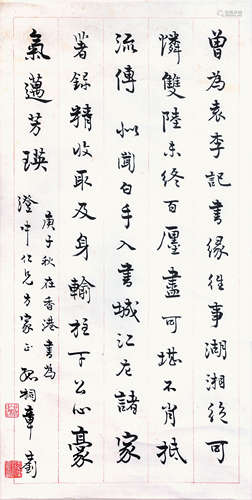 曾為袁李記書緣往事湖湘可
憐雙陸未終百廛盡可堪不肖抵
流傳 似聞白手入書城江左諸家
著錄精收取及身輸柱下公心豪
氣邁芳瑛
庚子秋在香港書為
澄中仁兄方家正 孤桐章釗